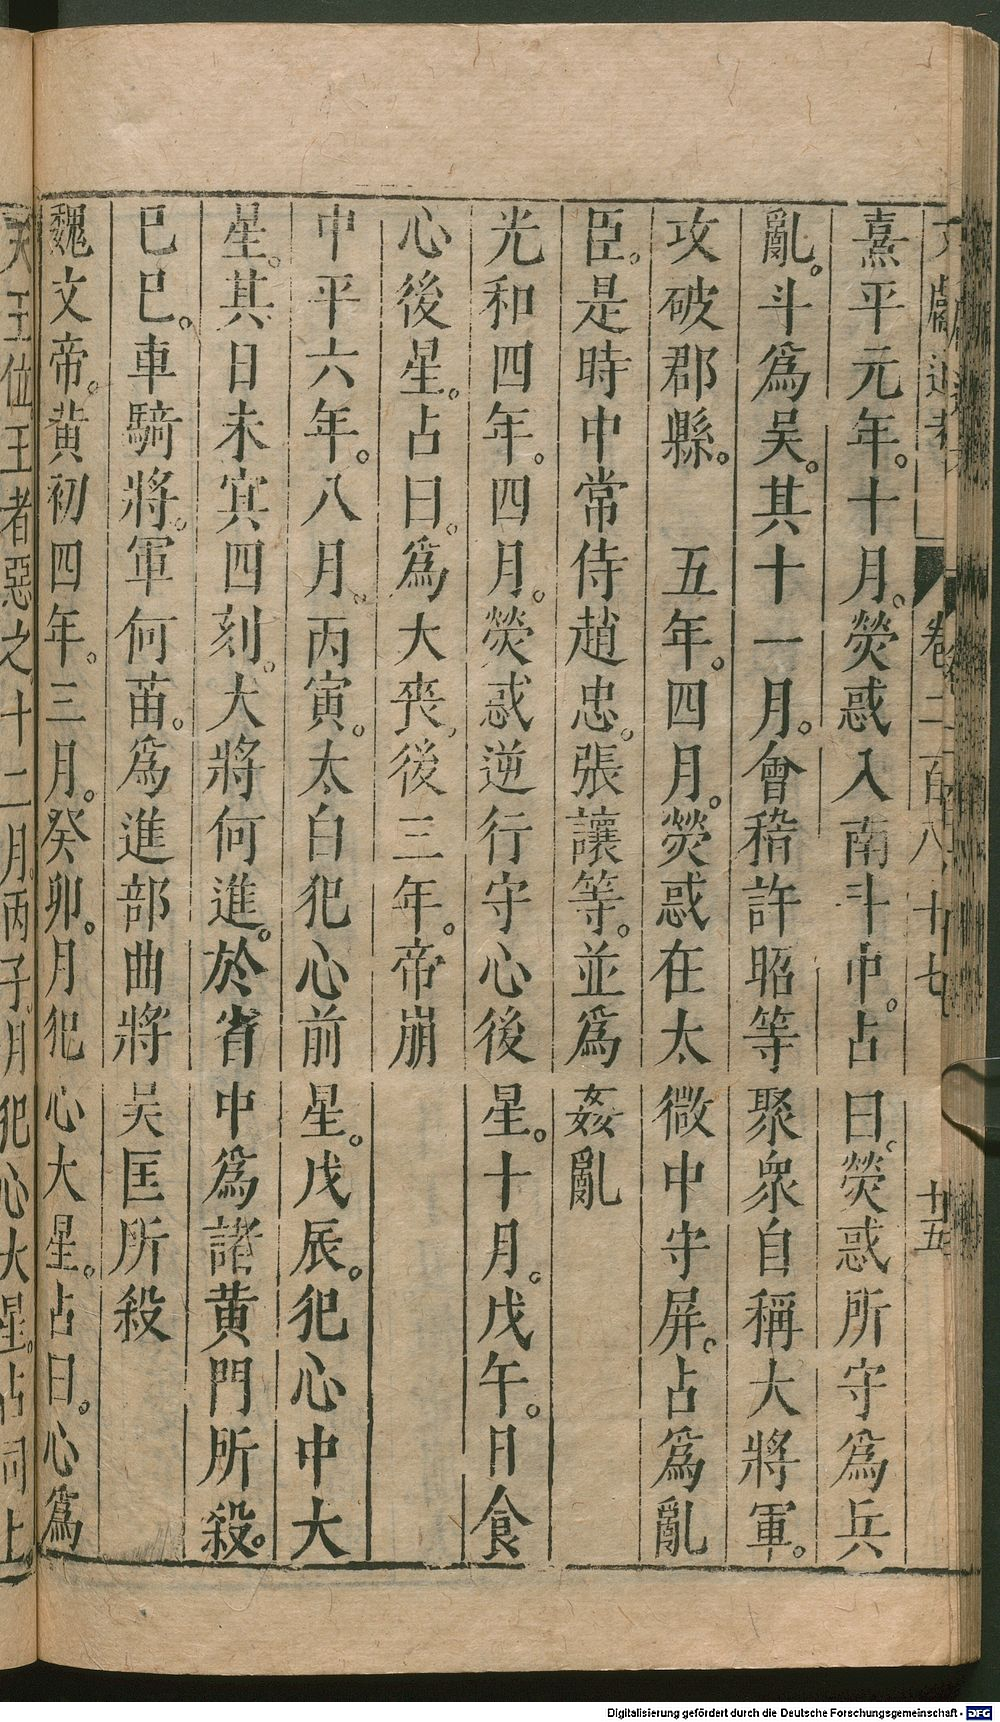 文獻通考 卷二百八十七 十五
熹平元年。十月。熒惑入南斗中。占曰。熒惑所守爲兵
亂。斗爲吴。其十一月。會稽許昭等聚衆自稱大將軍。
攻破郡縣。 五年。四月。熒惑在太微中守屏。占爲亂
臣。是時中常侍趙忠。張讓等。並爲姦亂
光和四年。四月。熒惑逆行守心後星。十月。戊午。日食
心後星。占曰。爲大喪。後三年。帝崩
中平六年。八月。丙寅。太白犯心前星。戊辰。犯心中大
星。其日未㝠四刻。大將何進。於省中爲諸黄門所殺。
巳巳。車騎將。軍何苗。爲進部曲將吴匡所殺
魏文帝。黄初四年。三月。癸卯。月犯心大星。占曰。心爲
天王位王者惡之十二月。丙子。月犯心大星。占同上。
Digitalisierung gefördert durch die Deutsche Forschungsgemeinschaft - DFG